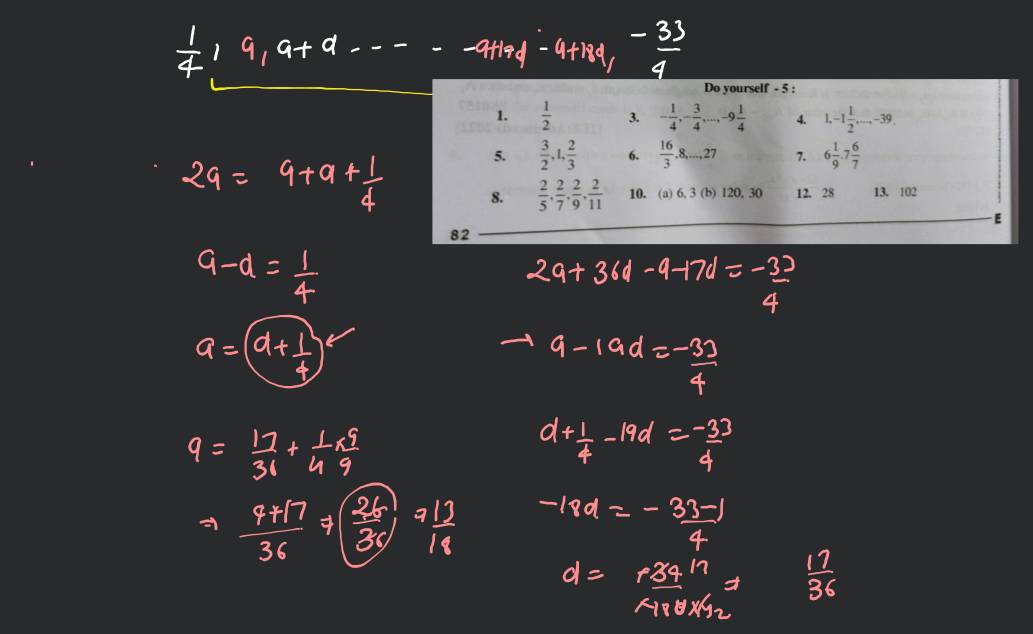 1/4, a, a+d - - - - - a+17d - a+18d, -33/4
Do yourself - 5 :
1. 1/2 3. -1/4, -3/4, ...., -9 1/4 4. 1, -1 1/2, ...., -39.
5. 3/2, 1, 2/3 6. 16/3, 8, ..., 27 7. 6 1/9, 7 6/7
8. 2/5, 2/7, 2/9, 2/11 10. (a) 6, 3 (b) 120, 30 12. 28 13. 102
82 E
2a = a+a+1/4
a-d = 1/4
a = d+1/4
a = 17/36 + 1/4 × 9/9
⇒ 9+17/36 ⇒ 26/36 ⇒ 13/18
2a + 36d - a - 17d = -33/4
→ a - 19d = -33/4
d + 1/4 - 19d = -33/4
-18d = -33-1/4
d = 17 ⇒ 17/36